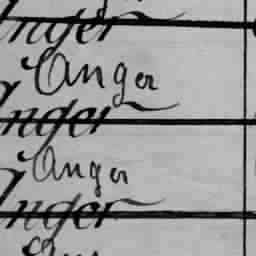 Anger
Anger
Anger
Anger
Anger